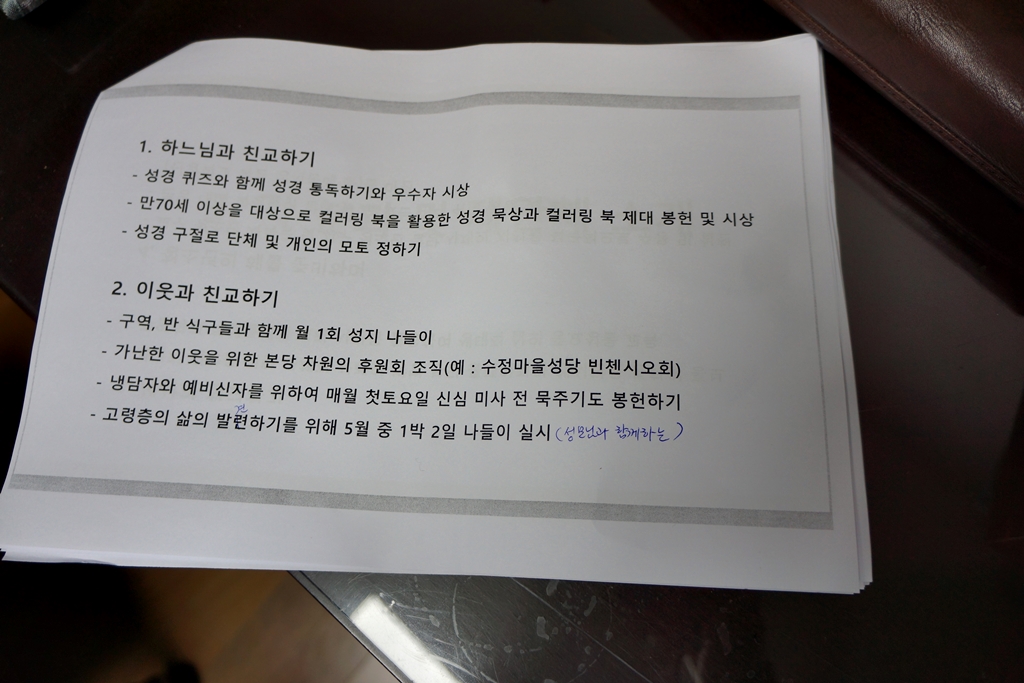 1. 하느님과 친교하기
- 성경 퀴즈와 함께 성경 통독하기와 우수자 시상
- 만70세 이상을 대상으로 컬러링 북을 활용한 성경 묵상과 컬러링 북 제대 봉헌 및 시상
- 성경 구절로 단체 및 개인의 모토 정하기
2. 이웃과 친교하기
- 구역, 반 식구들과 함께 월 1회 성지 나들이
- 가난한 이웃을 위한 본당 차원의 후원회 조직(예 : 수정마을성당 빈첸시오회)
- 냉담자와 예비신자를 위하여 매월 첫토요일 신심 미사 전 묵주기도 봉헌하기
견
- 고령층의 삶의 발련하기를 위해 5월 중 1박 2일 나들이 실시 (성모님과 함께하는)